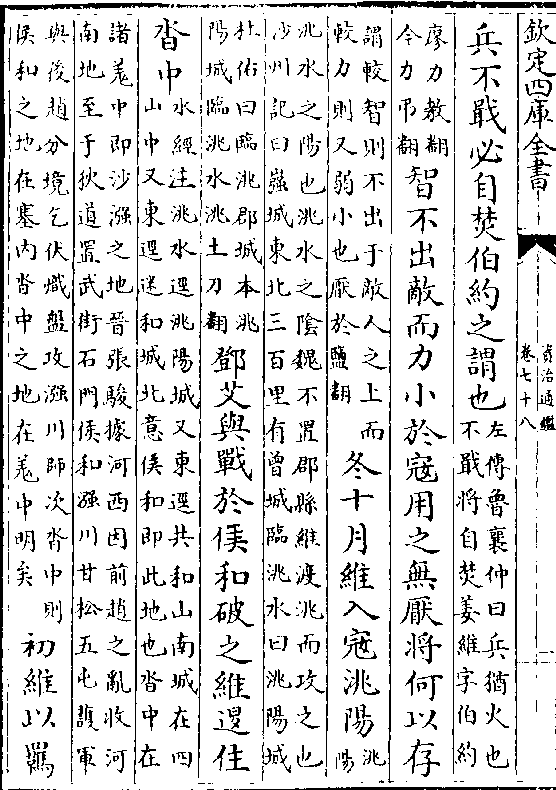 欽定四庫全書
資治通鑑
卷七十八
兵不戢必自焚伯約之謂也
左傳魯襄仲曰兵猶火也
不戢將自焚姜維字伯約
廖力救翻
今力弔翻
智不出敵而力小於寇用之無厭將何以存
謂較智則不出于敵人之上而
較力則又弱小也厭於鹽翻
冬十月維入寇洮陽
洮
陽
洮水之陽也洮水之陰魏不置郡縣維渡洮而攻之也
沙州記曰嵹城東北三百里有曾城臨洮水曰洮陽城
杜佑曰臨洮郡城本洮
陽城臨洮水洮土刀翻
鄧艾與戰於侯和破之維還住
沓中
水經注洮水逕洮陽城又東逕共和山南城在四
山中又東逕迷和城北意侯和即此地也沓中在
諸羌中即沙漒之地晉張駿據河西因前趙之亂收河
南地至于狄道置武街石門侯和漒川甘松五屯護軍
與後趙分境乞伏熾盤攻漒川師次沓中則
侯和之地在塞内沓中之地在羌中明矣
初維以羈